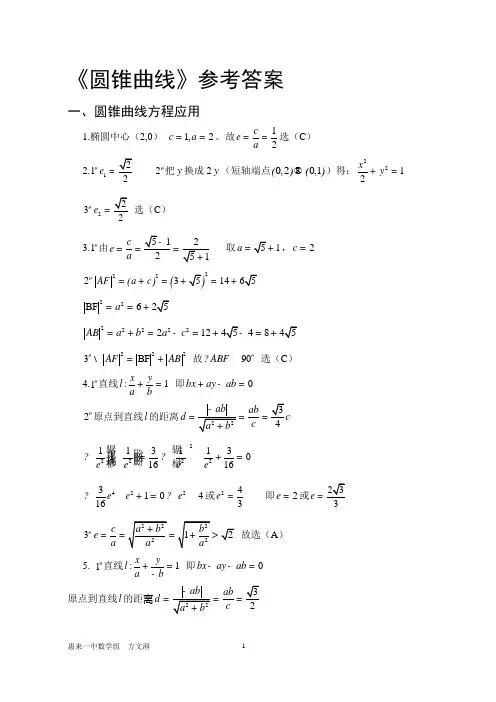 《圆锥曲线》参考答案
一、圆锥曲线方程应用
1.椭圆中心（2,0） c = 1, a = 2 。故 e = c/a = 1/2 选（C）
2. 1º e₁ = √2/2  2º 把 y 换成 2 y （短轴端点(0, 2)® (0,1)）得: x²/2 + y² = 1
3º e₂ = √2/2 选（C）
3. 1º 由 e = c/a = (√5 - 1)/2 = 2/(√5 + 1)  取 a = √5 + 1 , c = 2
2º |AF|² = (a + c)² = (3 + √5)² = 14 + 6√5
|BF|² = a² = 6 + 2√5
|AB|² = a² + b² = 2a² - c² = 12 + 4√5 - 4 = 8 + 4√5
3º \ |AF|² = |BF|² + |AB|² 故 ? ABF  90° 选（C）
4. 1º 直线 l : x/a + y/b = 1 即 bx + ay - ab = 0
2º 原点到直线 l 的距离 d = |- ab|/√(a² + b²) = ab/c = √3/4 c
? 1/e² 1/e² 3/16 ? 1/e² 1/e² + 3/16 = 0
? 3/16 e⁴ e² + 1 = 0 ? e² 4 或 e² = 4/3 即 e = 2 或 e = 2√3/3
3º e = c/a = √((a² + b²)/a²) = √(1 + b²/a²) > √2 故选（A）
5. 1º 直线 l : x/a + y/(- b) = 1 即 bx - ay - ab = 0
原点到直线 l 的距离 d = |- ab|/√(a² + b²) = ab/c = √3/2
惠来一中数学组 方文湃 1